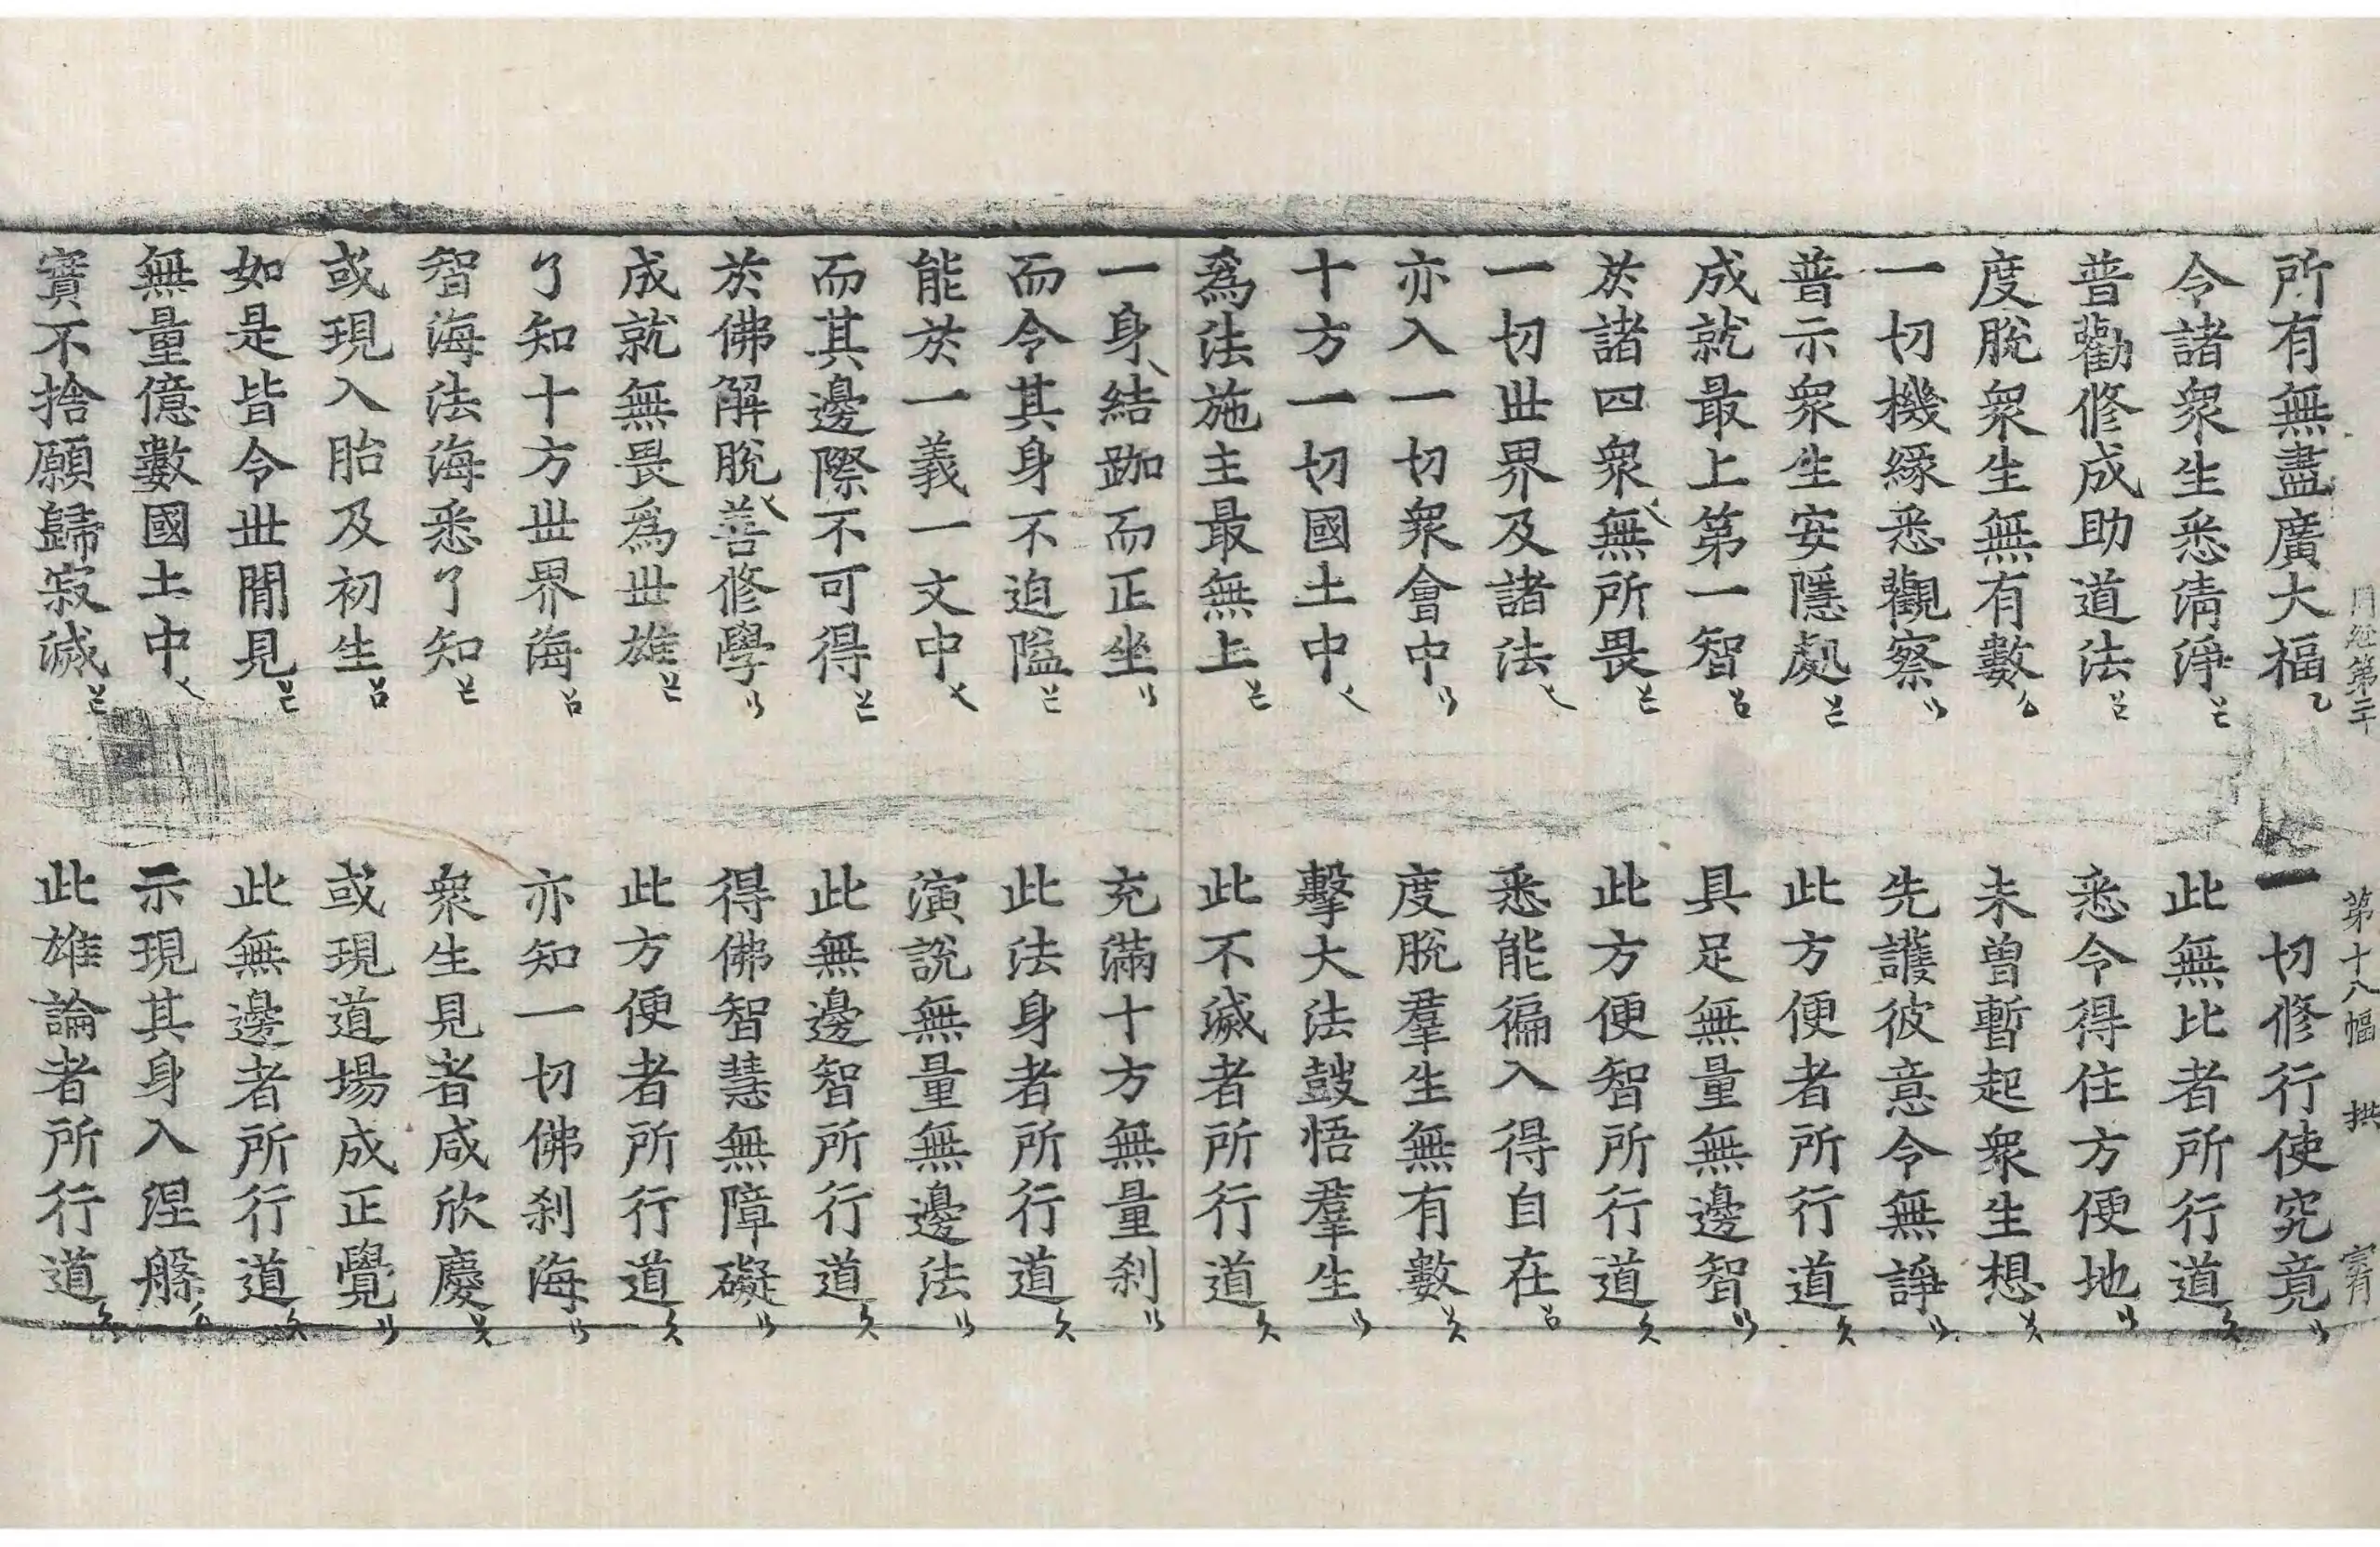 周經第二十　第十八幅　拱　宥
所有無盡廣大福　一切修行使究竟
令諸衆生悉淸淨　此無比者所行道
普勸修成助道法　悉令得住方便地
度脫衆生無有數　未曾暫起衆生想
一切機緣悉觀察　先護彼意令無諍
普示衆生安隱處　此方便者所行道
成就最上第一智　具足無量無邊智
於諸四衆無所畏　此方便智所行道
一切世界及諸法　悉能徧入得自在
亦入一切衆會中　度脫羣生無有數
十方一切國土中　擊大法鼓悟羣生
爲法施主最無上　此不滅者所行道
一身結跏而正坐　充滿十方無量刹
而令其身不迫隘　此法身者所行道
能於一義一文中　演說無量無邊法
而其邊際不可得　此無邊智所行道
於佛解脫善修學　得佛智慧無障礙
成就無畏爲世雄　此方便者所行道
了知十方世界海　亦知一切佛刹海
智海法海悉了知　衆生見者咸欣慶
或現入胎及初生　或現道場成正覺
如是皆令世閒見　此無邊者所行道
無量億數國土中　示現其身入涅槃
實不捨願歸寂滅　此雄論者所行道